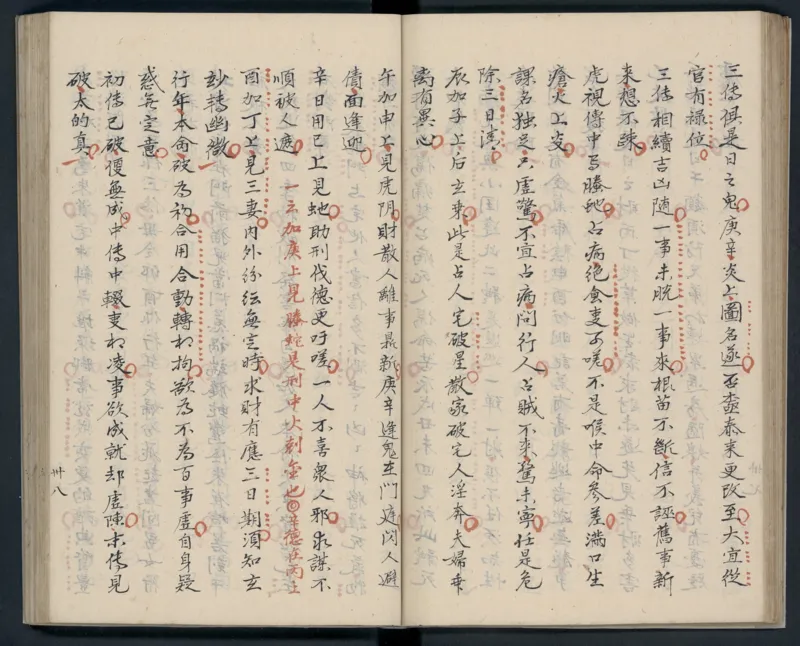 三傳俱是日之鬼庚辛炎上圖名遂否盡泰來更改至大宜從
官有祿位
三傳相續吉凶隨一事未脫一事來根苗不斷信不誣舊事新
來想不疎
虎視傳中馬螣虵占病絕食妻可嗟不是喉中命參差滿口生
瘡火上支
課名独足只虛驚不宜占病問行人占賊不來驚未寧任是危
除三日清
辰加子上后玄乘此是占人宅破星散家破宅人淫奔夫婦乖
离有異心
午加申上見虎陰財散人離事最新庚辛逢鬼在門庭閃人避
債面逢迎
辛日用巳上見虵助刑伐德更吁嗟一人不喜衆人邪求謀不
順被人遮 一云加庚上見螣蛇是刑中火剋金也 辛德在丙上
酉加丁上見三妻內外紛紜無定時求財有應三日期須知玄
妙轉幽微
行年本命破為初合用合動轉相拘欲為不為百事虛自身疑
惑無定意
初傳已破便無成中傳中輟更相凌事欲成就却虛陳末傳見
破太的真
卅八